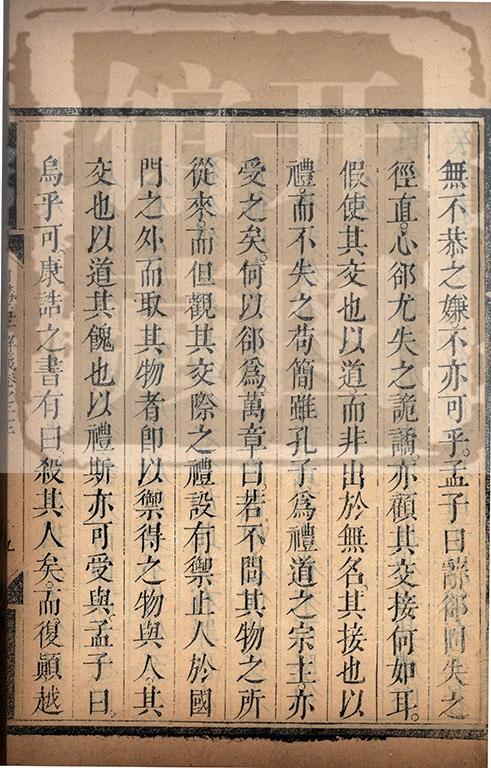 無不恭之嫌。不亦可乎。孟子曰。辭卻固失之
徑直。心卻尤失之詭譎。亦顧其交接何如耳。
假使其交也以道。而非出於無名。其接也以
禮。而不失之苟簡。雖孔子爲禮道之宗主。亦
受之矣。何以卻爲。萬章曰。若不問其物之所
從來。而但觀其交際之禮。設有禦止人於國
門之外而取其物者。卽以禦得之物與人。其
交也以道。其餽也以禮。斯亦可受與。孟子曰。
烏乎可。康誥之書有曰。殺其人矣。而復顚越